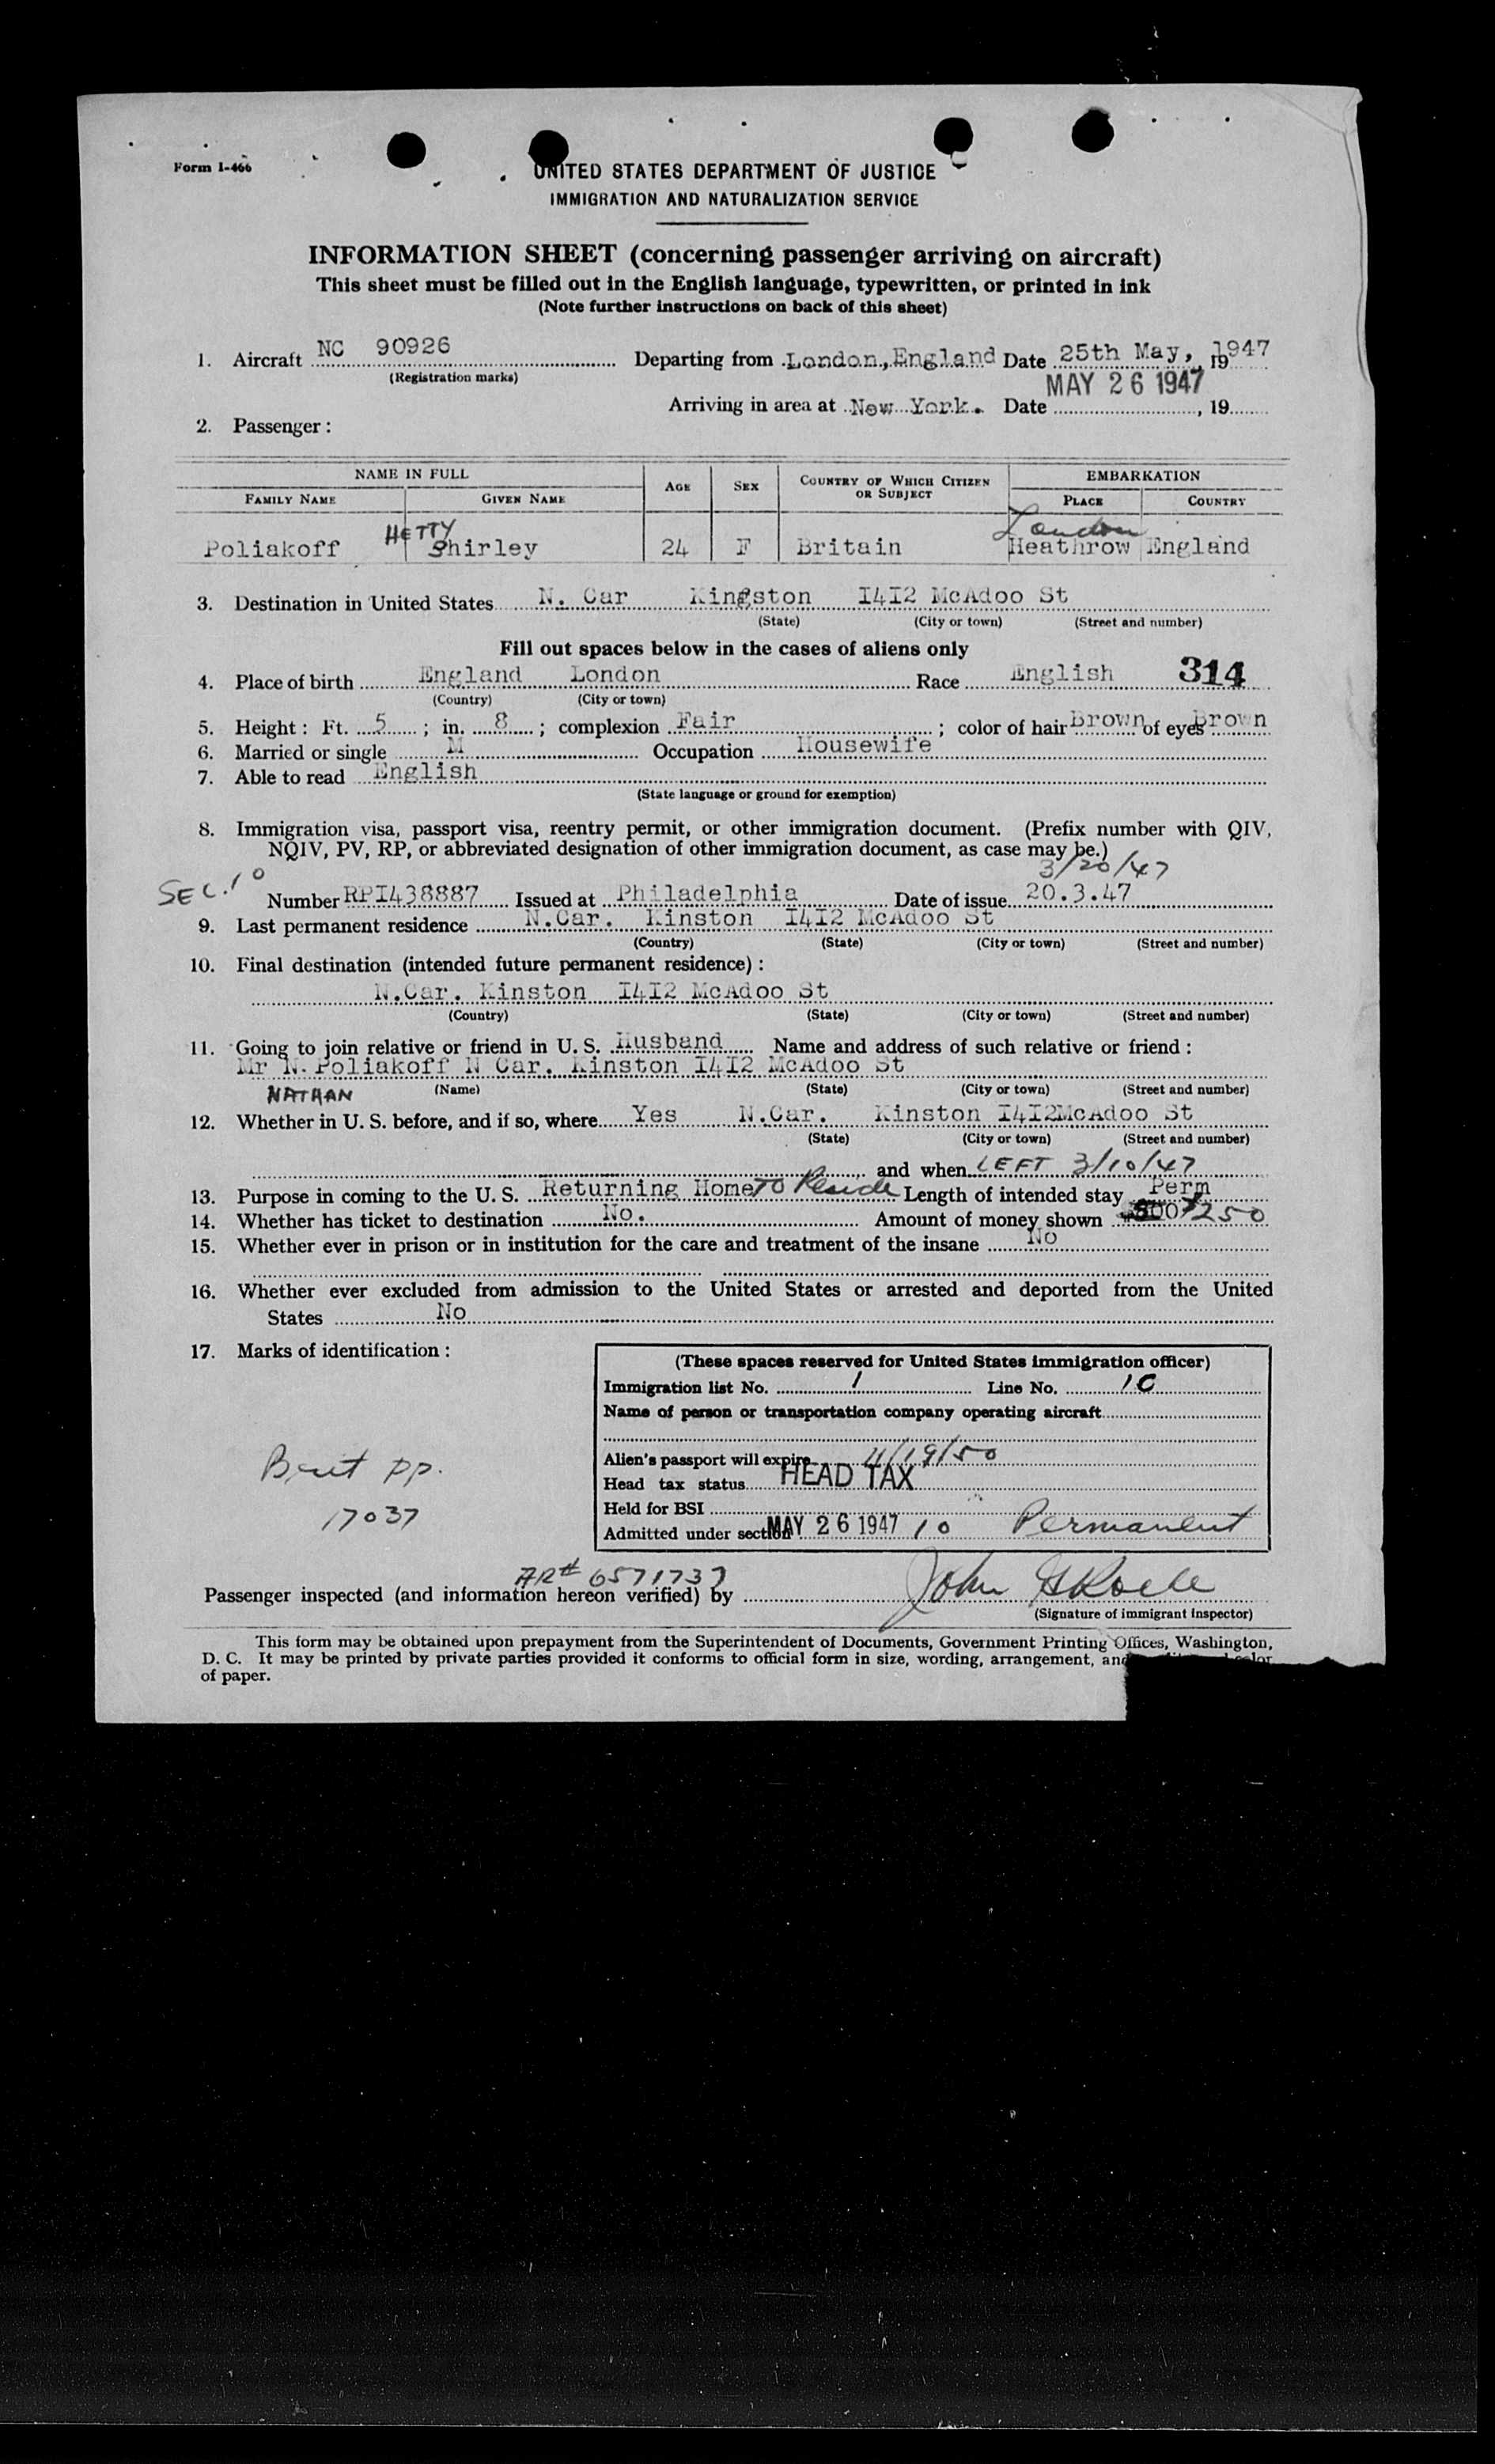 Form I-466
UNITED STATES DEPARTMENT OF JUSTICE
IMMIGRATION AND NATURALIZATION SERVICE
INFORMATION SHEET (concerning passenger arriving on aircraft)
This sheet must be filled out in the English language, typewritten, or printed in ink
(Note further instructions on back of this sheet)
1. Aircraft NC 90926 Departing from London, England Date 25th May, 1947
(Registration marks)
MAY 26 1947
Arriving in area at New York. Date , 19
2. Passenger:
NAME IN FULL AGE SEX COUNTRY OF WHICH CITIZEN OR SUBJECT EMBARKATION
FAMILY NAME GIVEN NAME PLACE COUNTRY
HETTY London
Poliakoff Shirley 24 F Britain Heathrow England
3. Destination in United States N. Car Kingston I4I2 McAdoo St
(State) (City or town) (Street and number)
Fill out spaces below in the cases of aliens only
4. Place of birth England London Race English 314
(Country) (City or town)
5. Height: Ft. 5; in. 8; complexion Fair; color of hair Brown of eyes Brown
6. Married or single M Occupation Housewife
7. Able to read English
(State language or ground for exemption)
8. Immigration visa, passport visa, reentry permit, or other immigration document. (Prefix number with QIV,
NQIV, PV, RP, or abbreviated designation of other immigration document, as case may be.)
3/20/47
SEC. 10 Number RPI438887 Issued at Philadelphia Date of issue 20.3.47
9. Last permanent residence N.Car. Kinston I4I2 McAdoo St
(Country) (State) (City or town) (Street and number)
10. Final destination (intended future permanent residence):
N.Car. Kinston I4I2 McAdoo St
(Country) (State) (City or town) (Street and number)
11. Going to join relative or friend in U. S. Husband Name and address of such relative or friend:
Mr N. Poliakoff N Car. Kinston I4I2 McAdoo St
NATHAN (Name) (State) (City or town) (Street and number)
12. Whether in U. S. before, and if so, where Yes N.Car. Kinston I4I2McAdoo St
(State) (City or town) (Street and number)
and when LEFT 3/10/47
13. Purpose in coming to the U. S. Returning Home TO Reside Length of intended stay Perm
14. Whether has ticket to destination No. Amount of money shown 250
15. Whether ever in prison or in institution for the care and treatment of the insane No
16. Whether ever excluded from admission to the United States or arrested and deported from the United
States No
17. Marks of identification:
(These spaces reserved for United States immigration officer)
Immigration list No. 1 Line No. 10
Name of person or transportation company operating aircraft
Alien's passport will expire 4/19/50
Head tax status HEAD TAX
Held for BSI
Admitted under section MAY 26 1947 10 Permanent
Brit pp.
17037
AR# 6571737
Passenger inspected (and information hereon verified) by John
(Signature of immigrant inspector)
This form may be obtained upon prepayment from the Superintendent of Documents, Government Printing Offices, Washington,
D. C. It may be printed by private parties provided it conforms to official form in size, wording, arrangement, and
of paper.